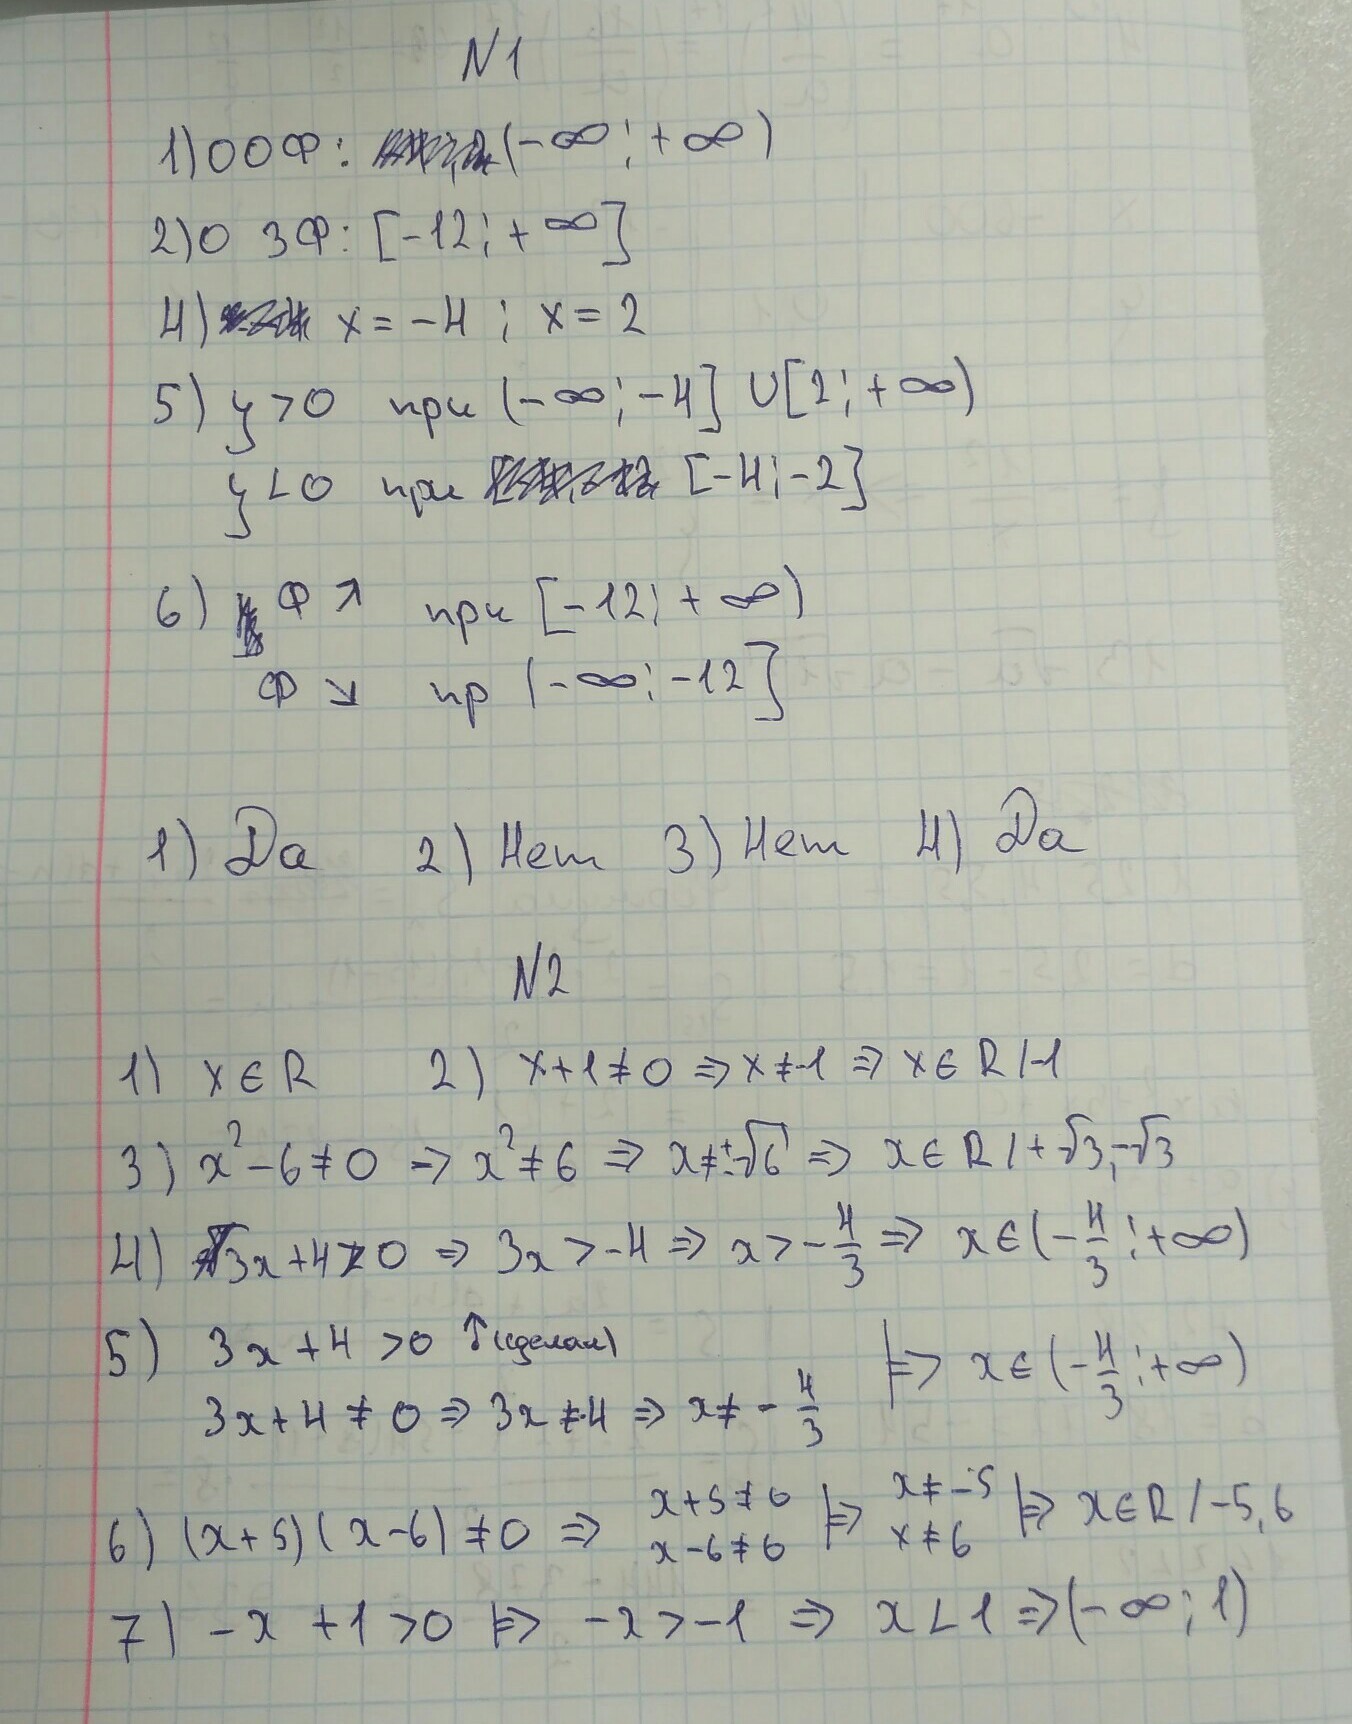 N1
1) ООФ: (-∞; +∞)
2) О ЗФ: [-12; +∞]
4) x = -4 ; x = 2
5) y > 0 при (-∞; -4] ∪ [2; +∞)
y < 0 при [-4; -2]
6) Ф ↗ при [-12; +∞)
Ф ↘ пр (-∞; -12]
1) Да 2) Нет 3) Нет 4) Да
N2
1) x ∈ R 2) x + 1 ≠ 0 ⇒ x ≠ -1 ⇒ x ∈ R / -1
3) x² - 6 ≠ 0 ⇒ x² ≠ 6 ⇒ x ≠ ±√6 ⇒ x ∈ R / +√3, -√3
4) 3x + 4 > 0 ⇒ 3x > -4 ⇒ x > -4/3 ⇒ x ∈ (-4/3; +∞)
5) 3x + 4 > 0 ↑ (сделал)
3x + 4 ≠ 0 ⇒ 3x ≠ -4 ⇒ x ≠ -4/3 |⇒ x ∈ (-4/3; +∞)
6) (x + 5)(x - 6) ≠ 0 ⇒ x + 5 ≠ 0 |⇒ x ≠ -5 |⇒ x ∈ R / -5, 6
x - 6 ≠ 0 x ≠ 6
7) -x + 1 > 0 |⇒ -x > -1 ⇒ x < 1 ⇒ (-∞; 1)